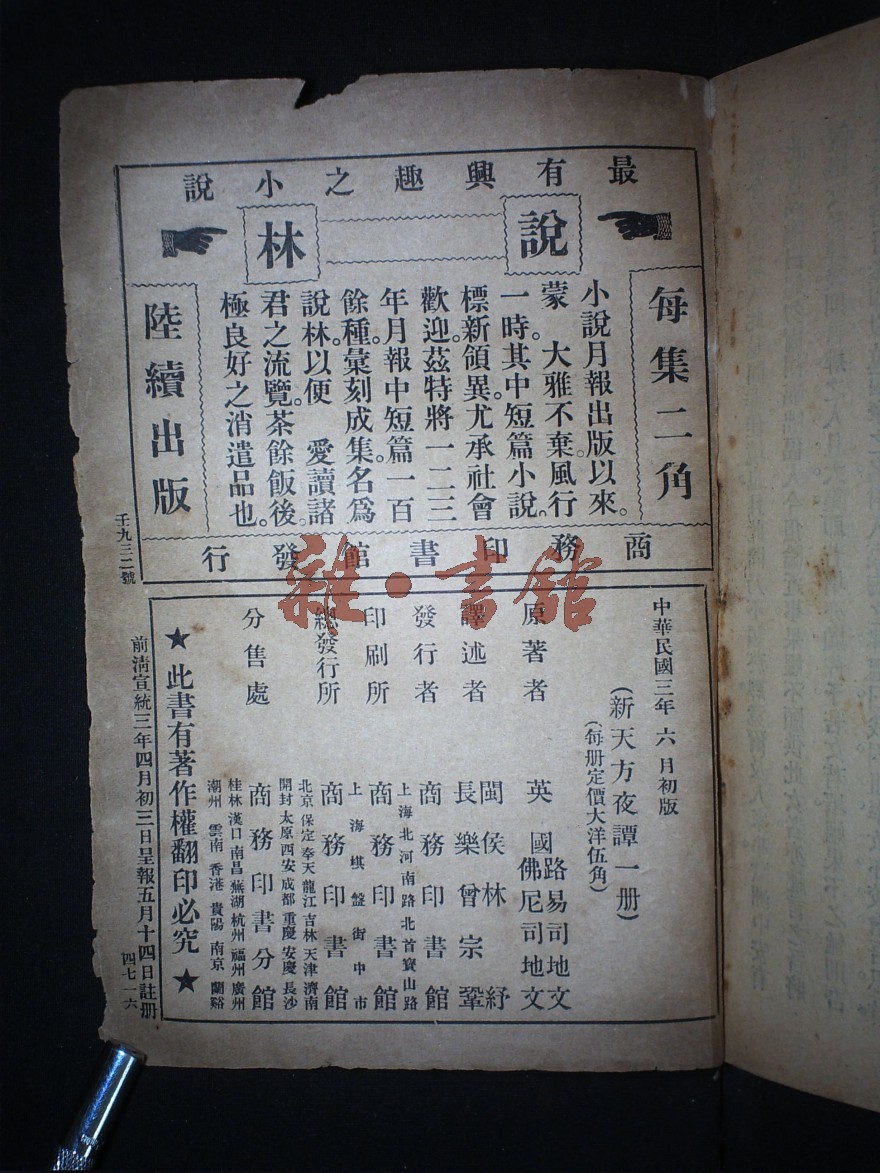 最有興趣之小說
說林
每集二角
小說月報出版以來。
蒙 大雅不棄風行
一時其中短篇小說。
標新領異尤承社會
歡迎茲特將一二三
年月報中短篇一百
餘種彙刻成集。名爲
說林以便 愛讀諸
君之流覽。茶餘飯後。
極良好之消遣品也。
陸續出版
商務印書館發行
壬九三二號
中華民國三年六月初版
(新天方夜譚一册)
(每册定價大洋伍角)
原著者 英國路易司地文
佛尼司地文
譯述者 閩侯林紓
長樂曾宗鞏
發行者 商務印書館
上海北河南路北首寶山路
印刷所 商務印書館
上海棋盤街中市
總發行所 商務印書館
北京保定奉天龍江吉林天津濟南
開封太原西安成都重慶安慶長沙
分售處 商務印書分館
桂林漢口南昌蕪湖杭州福州廣州
潮州 雲南 香港 貴陽 南京 蘭谿
★此書有著作權翻印必究★
前清宣統三年四月初三日呈報五月十四日註册
四七一六
雜·書館